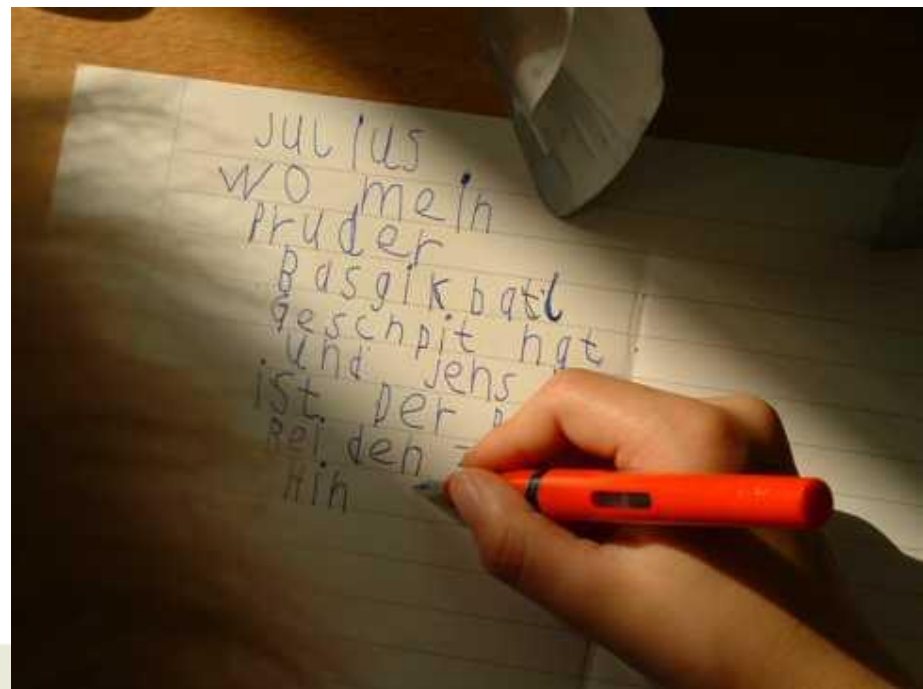 Julius
wo mein
Pruder
Basgikbatl
geschpit hat
und jens
ist. Der
Bei den
Hin